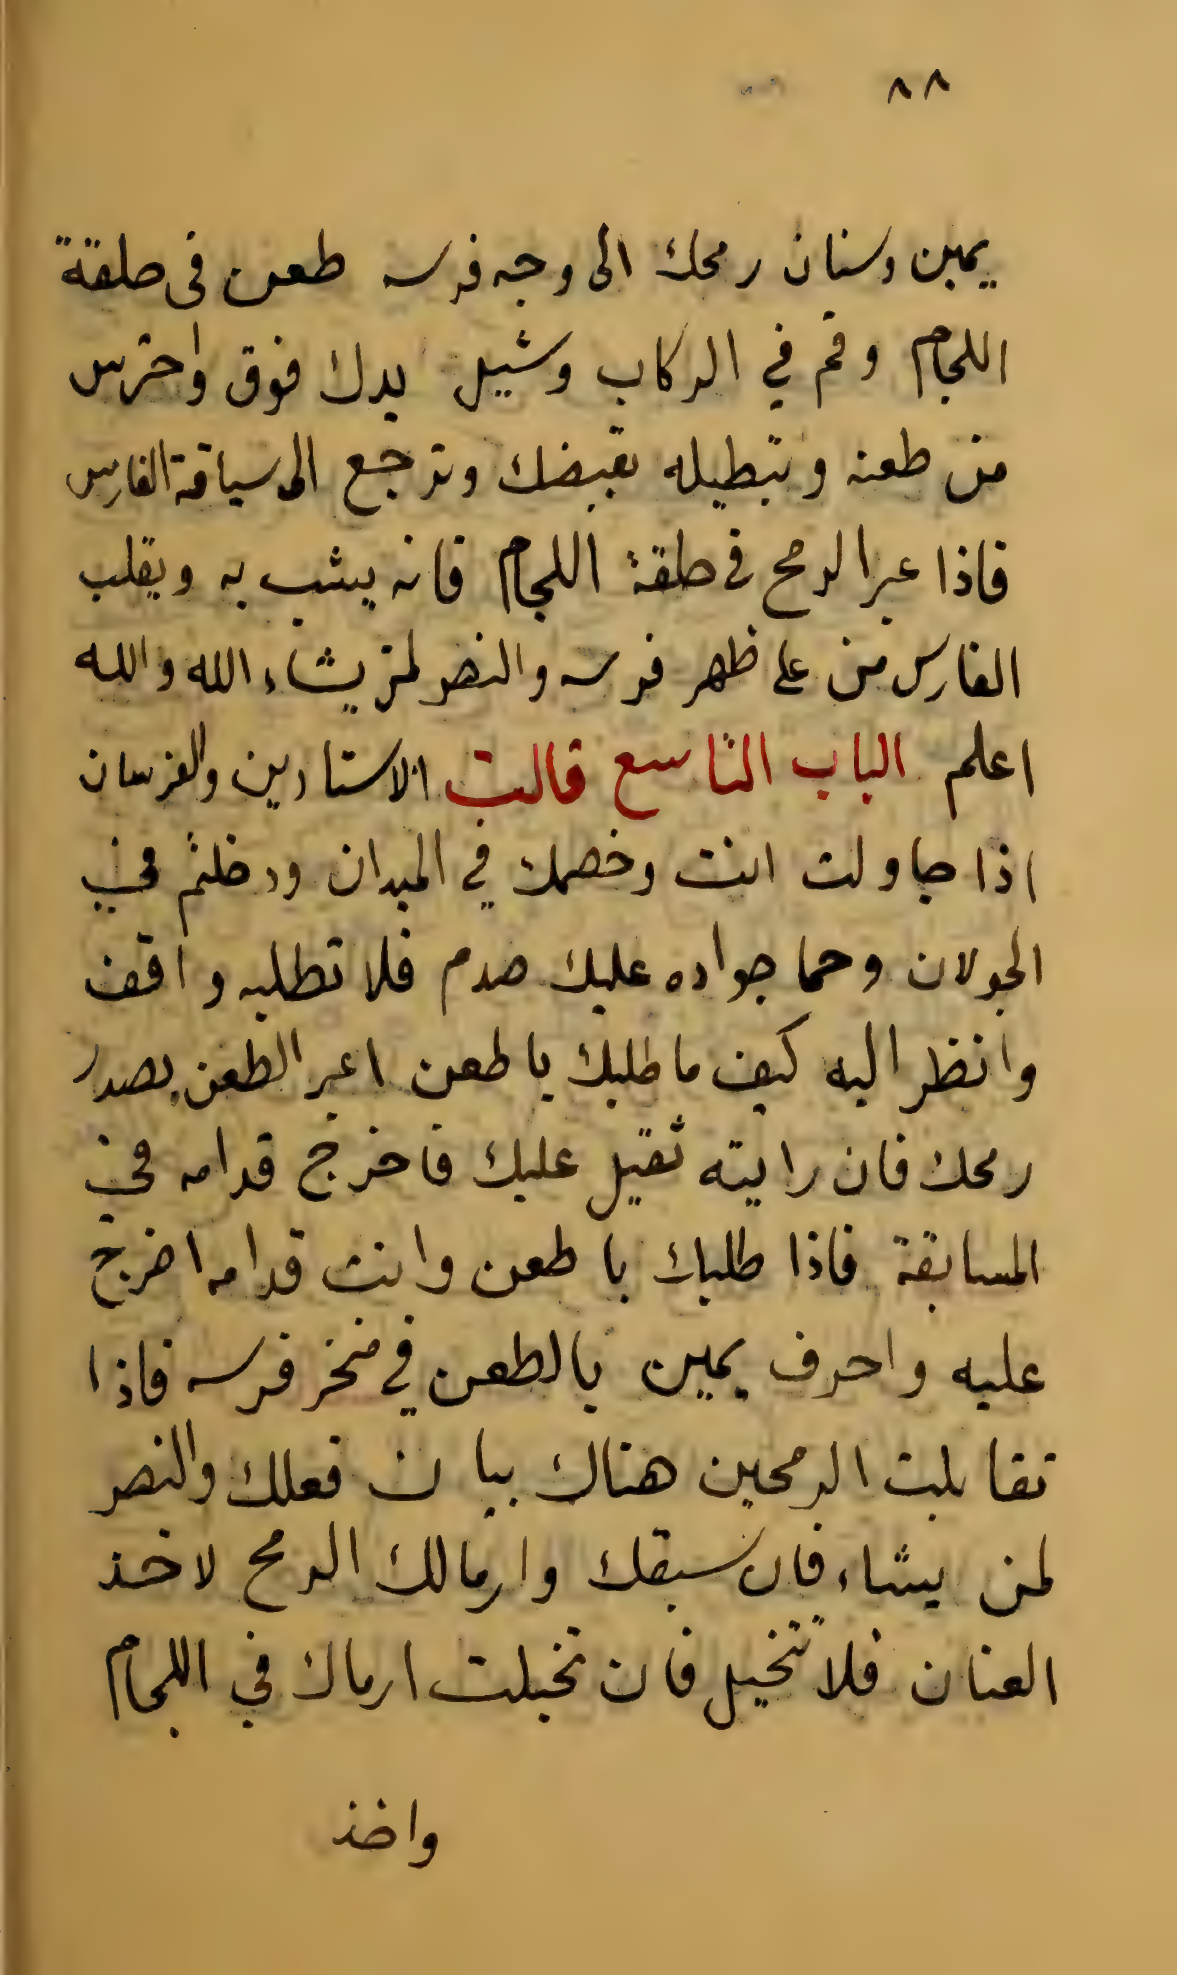 ٨٨
يمين وسنان رمحك الى وجه فرسه طعن فى حلقة
اللجام وقم في الركاب وشيل يدك فوق واحترس
من طعنه وتبطيله بقبضك وترجع الى سياقة الفارس
فاذا عبر الرمح في حلقة اللجام فانه يشب به ويقلب
الفارس من على ظهر فرسه والنصر لمن يشاء الله والله
اعلم الباب التاسع قالت الاستادين والفرسان
اذا جاولت انت وخصمك في الميدان ودخلتم في
الجولان وحما جواده عليك صدم فلا تطلبه واقف
وانظر اليه كيف ما طلبك باطعن اعبر الطعن بصدر
رمحك فان رايته ثقيل عليك فاخرج قدامه في
المسابقة فاذا طلبك با طعن وانت قدامه اخرج
عليه واحرف يمين بالطعن في منخر فرسه فاذا
تقابلت الرمحين هناك بيان فعلك والنصر
لمن يشاء فان سبقك وارمالك الرمح لاخذ
العنان فلا تتخيل فان تخيلت ارماك في اللجام
واخذ